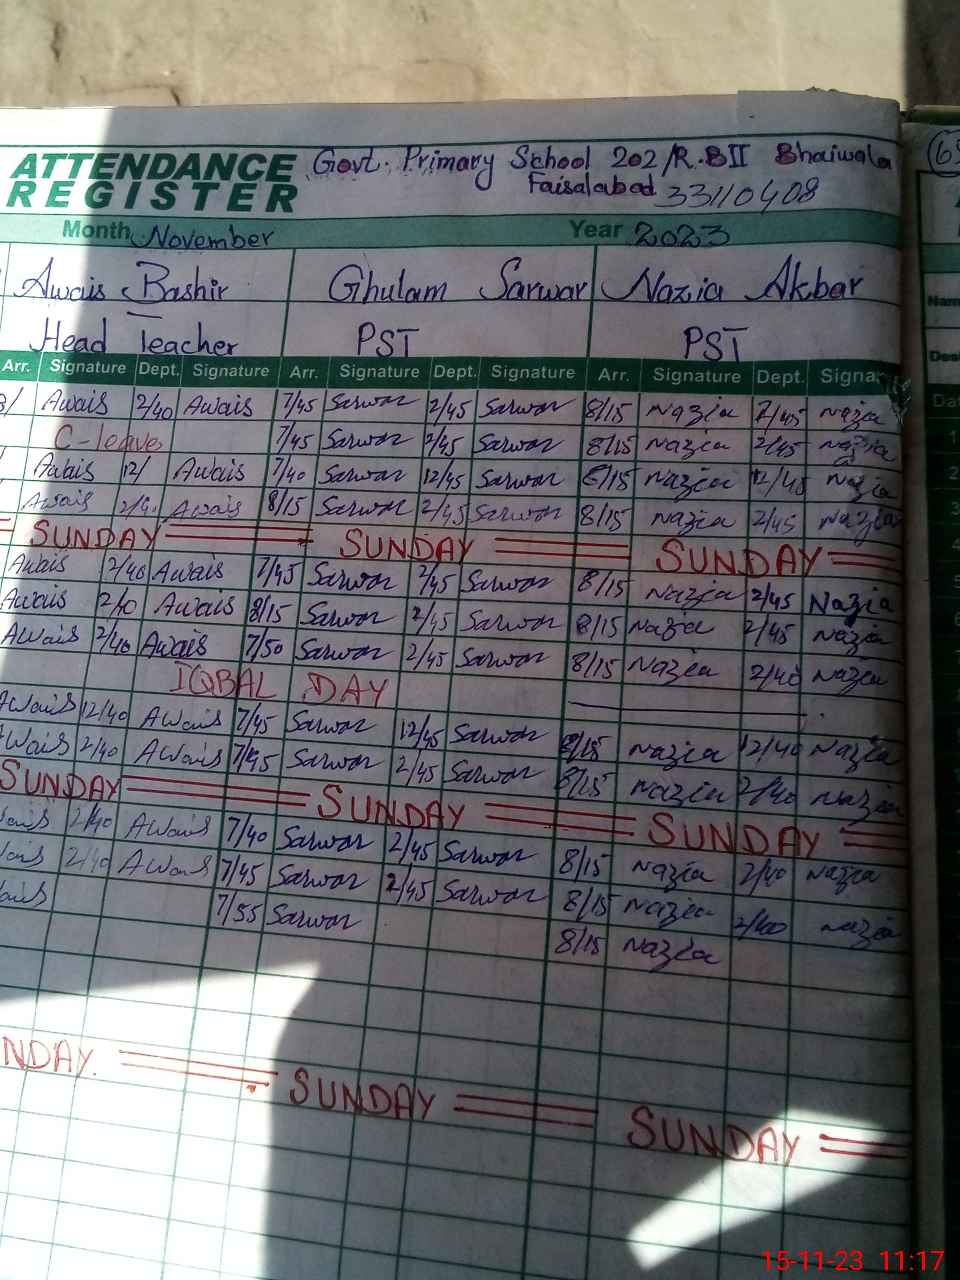 ATTENDANCE REGISTER
Govt. Primary School 202/R.BII Bhaiwala
Faisalabad 33110408
Month November Year 2023
Awais Bashir Ghulam Sarwar Nazia Akbar
Head Teacher PST PST
Arr. Signature Dept. Signature Arr. Signature Dept. Signature Arr. Signature Dept. Signa
Awais 2/40 Awais 7/45 Sarwar 2/45 Sarwar 8/15 Nazia 2/45 Nazia
C-leave 7/45 Sarwar 2/45 Sarwar 8/15 Nazia 2/45 Nazia
Awais 12/ Awais 7/40 Sarwar 12/45 Sarwar 8/15 Nazia Nazia
Awais Awais 8/15 Sarwar 2/45 Sarwar 8/15 Nazia 2/45 Nazia
SUNDAY SUNDAY SUNDAY
Awais 2/40 Awais 7/45 Sarwar 2/45 Sarwar 8/15 Nazia 2/45 Nazia
Awais 2/40 Awais 8/15 Sarwar 2/45 Sarwar 8/15 Nazia 2/45 Nazia
Awais 2/40 Awais 7/50 Sarwar 2/45 Sarwar 8/15 Nazia 2/40 Nazia
IQBAL DAY
Awais 12/40 Awais 7/45 Sarwar 12/45 Sarwar 8/15 Nazia 12/40 Nazia
Awais 2/40 Awais 7/45 Sarwar 2/45 Sarwar 8/15 Nazia 2/40 Nazia
SUNDAY SUNDAY SUNDAY
2/40 Awais 7/40 Sarwar 2/45 Sarwar 8/15 Nazia 2/40 Nazia
2/40 Awais 7/45 Sarwar 2/45 Sarwar 8/15 Nazia 2/40 Nazia
7/55 Sarwar 8/15 Nazia
NDAY. SUNDAY SUNDAY
15-11-23 11:17